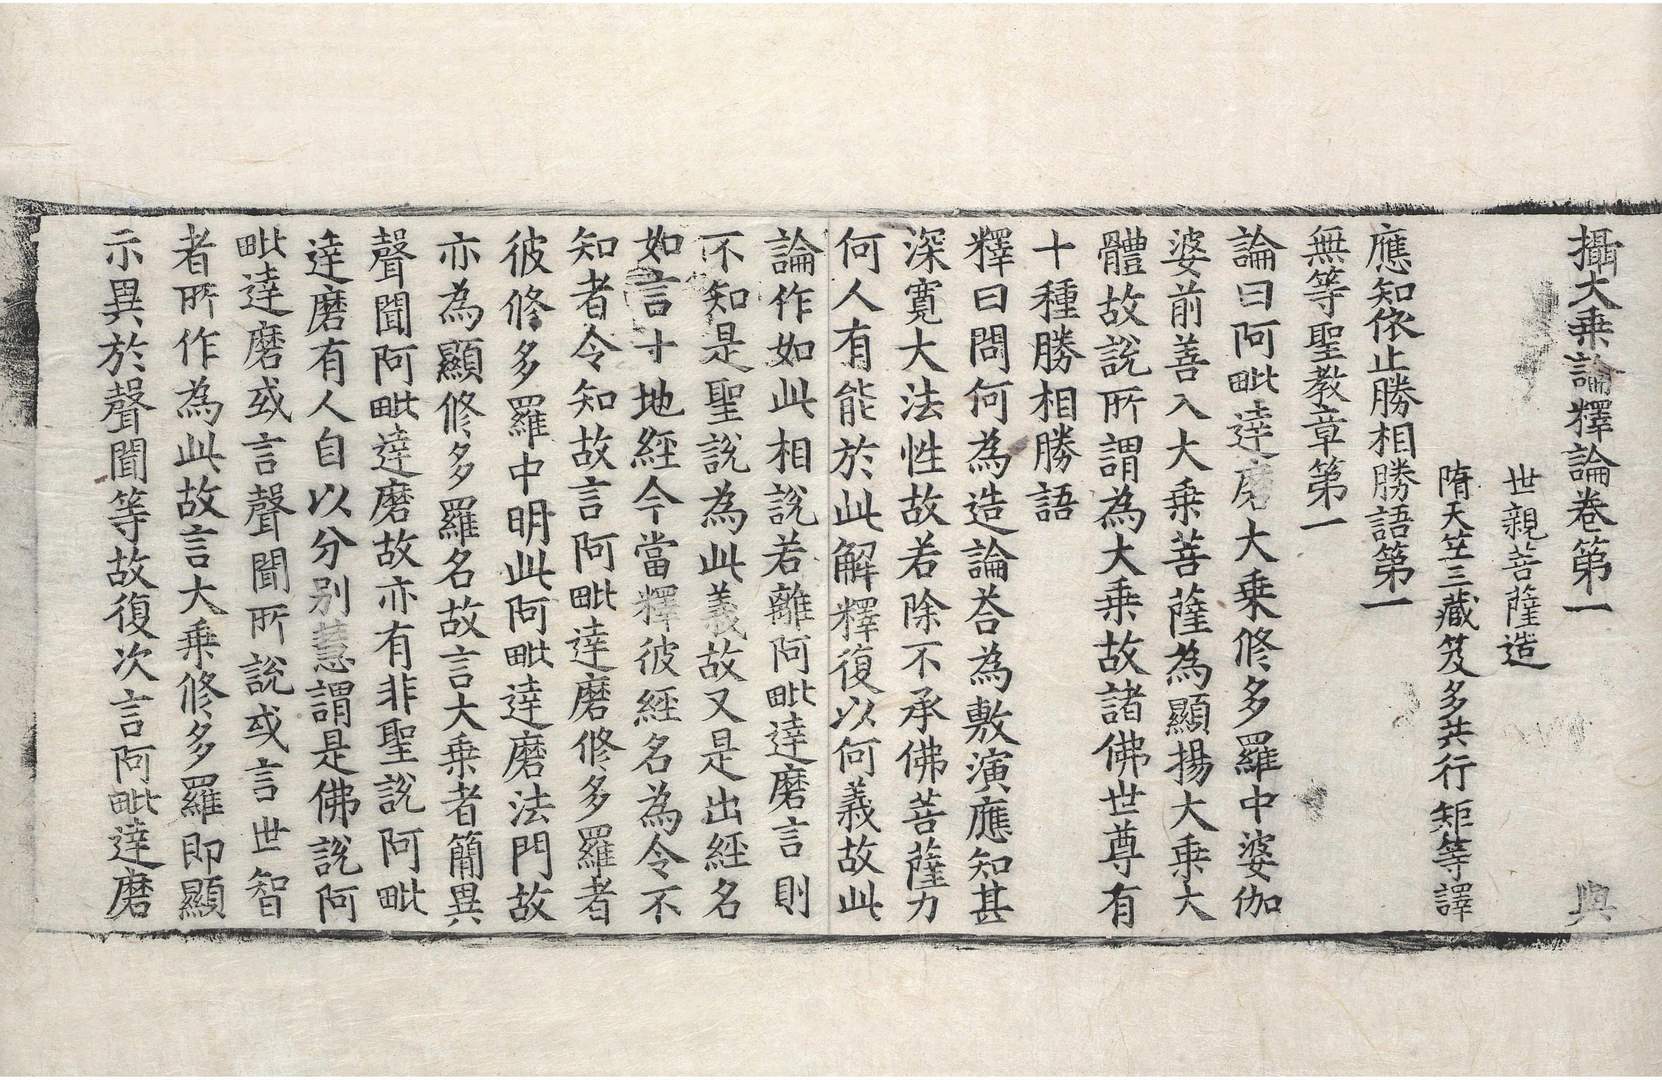 攝大乗論釋論卷第一 與
世親菩薩造
隋天竺三藏笈多共行矩等譯
應知依止勝相勝語第一
無等聖教章第一
論曰阿毗達磨大乗修多羅中婆伽
婆前善入大乗菩薩為顯揚大乗大
體故說所謂為大乗故諸佛世尊有
十種勝相勝語
釋曰問何為造論荅為敷演應知甚
深寬大法性故若除不承佛菩薩力
何人有能於此解釋復以何義故此
論作如此相說若離阿毗達磨言則
不知是聖說為此義故又是出經名
如言十地經今當釋彼經名為令不
知者令知故言阿毗達磨修多羅者
彼修多羅中明此阿毗達磨法門故
亦為顯修多羅名故言大乗者簡異
聲聞阿毗達磨故亦有非聖說阿毗
達磨有人自以分別慧謂是佛說阿
毗達磨或言聲聞所說或言世智
者所作為此故言大乗修多羅即顯
示異於聲聞等故復次言阿毗達磨